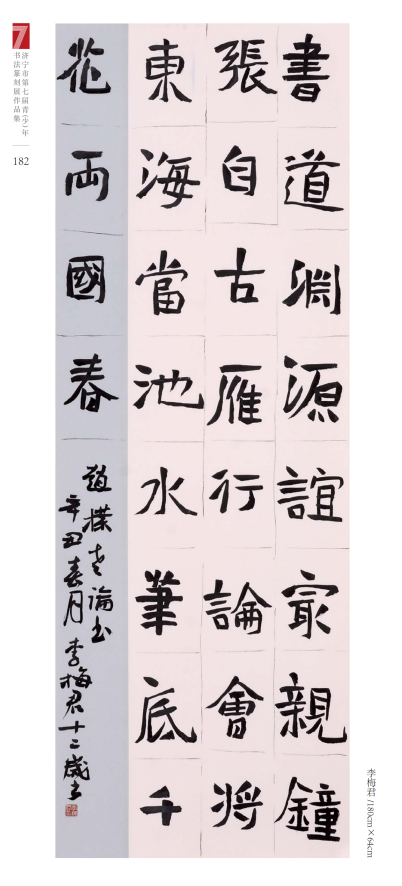 書道淵源誼最親鐘
張自古雁行論會將
東海當池水筆底千
花兩國春
趙樸老論書
辛丑春月李梅君十二歲書
7
濟宁市第七届青(少)年
书法篆刻展作品集
182
李梅君/180cm×64cm